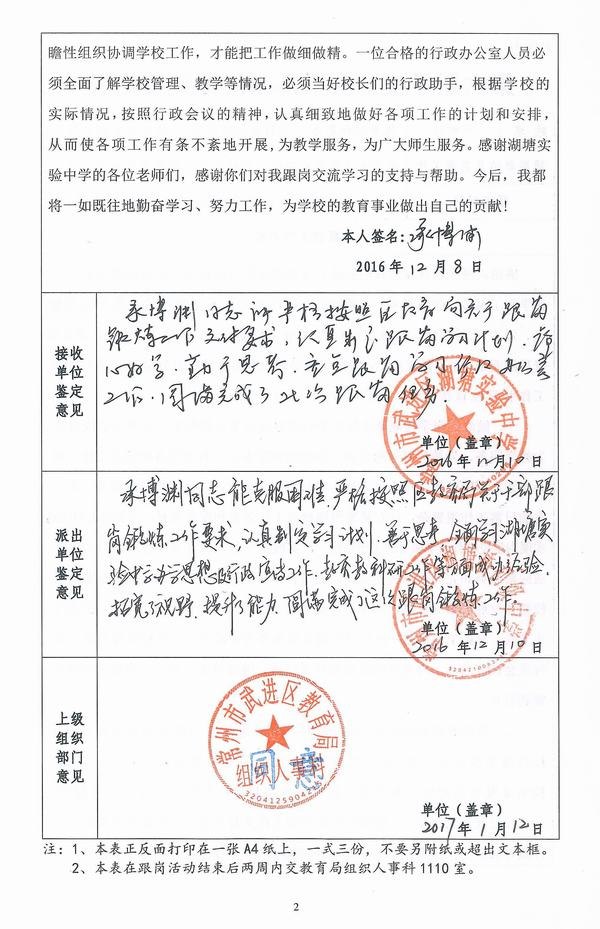 瞻性组织协调学校工作，才能把工作做细做精。一位合格的行政办公室人员必
须全面了解学校管理、教学等情况，必须当好校长们的行政助手，根据学校的
实际情况，按照行政会议的精神，认真细致地做好各项工作的计划和安排，
从而使各项工作有条不紊地开展，为教学服务，为广大师生服务。感谢湖塘实
验中学的各位老师们，感谢你们对我跟岗交流学习的支持与帮助。今后，我都
将一如既往地勤奋学习、努力工作，为学校的教育事业做出自己的贡献！
本人签名：承博渊
2016年12月8日
接收
单位
鉴定
意见
承博渊同志能严格按照区教育局关于跟岗
锻炼工作文件要求，认真制定跟岗学习计划，
好学，勤于思考，
工作，圆满完成了此次跟岗任务。
常州市武进区湖塘实验中学
单位（盖章）
2016年12月10日
派出
单位
鉴定
意见
承博渊同志能克服困难，严格按照区教育局关于干部跟
岗锻炼工作要求，认真制定学习计划，善于思考，全面学习湖塘实
验中学办学思想及行政管理工作、教育教科研工作等方面成功经验，
拓宽了视野，提升了能力，圆满完成了这次跟岗锻炼工作。
单位（盖章）
2016年12月10日
上级
组织
部门
意见
常州市武进区教育局
组织人事科
同意
单位（盖章）
2017年1月12日
注：1、本表正反面打印在一张A4纸上，一式三份，不要另附纸或超出文本框。
2、本表在跟岗活动结束后两周内交教育局组织人事科1110室。
2